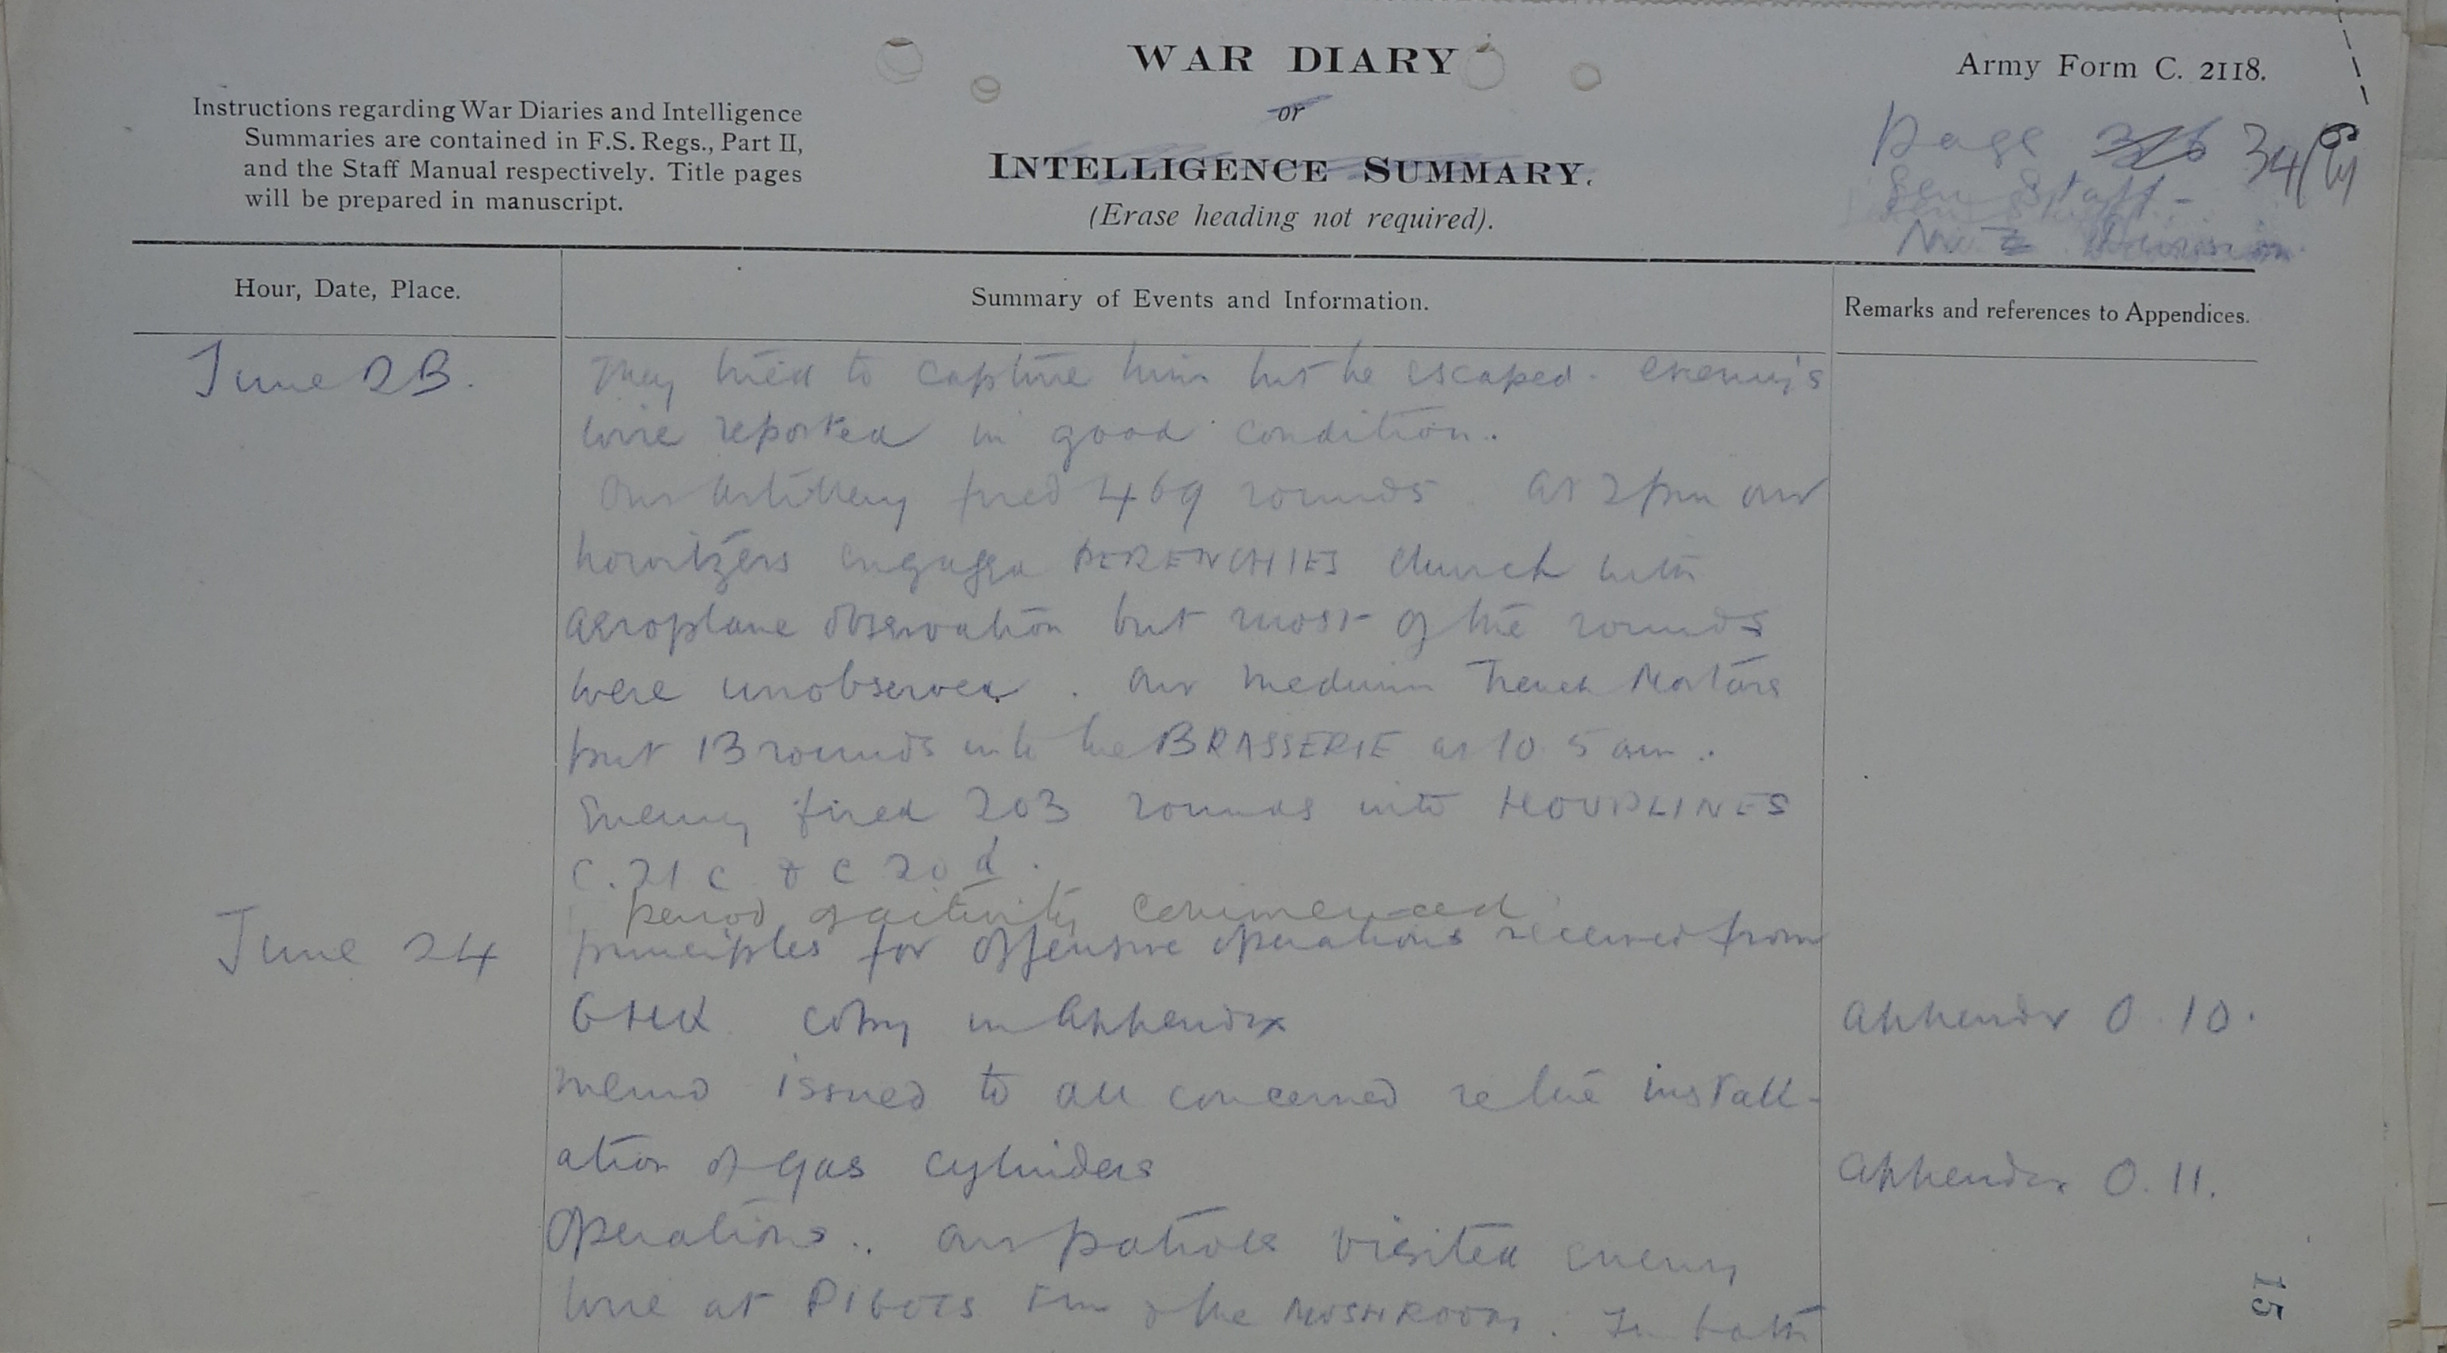 WAR DIARY
or
INTELLIGENCE SUMMARY.
(Erase heading not required).
Army Form C. 2118.
Instructions regarding War Diaries and Intelligence
Summaries are contained in F.S. Regs., Part II,
and the Staff Manual respectively. Title pages
will be prepared in manuscript.
page 34
Gen Staff -
N.Z. Division
Hour, Date, Place.
Summary of Events and Information.
Remarks and references to Appendices.
June 23.
They tried to capture him but he escaped. enemy's
wire reported in good condition.
Our Artillery fired 469 rounds. At 2 pm our
howitzers engaged PERENCHIES Church with
aeroplane observation but most of the rounds
were unobserved. Our medium Trench Mortars
put 13 rounds into the BRASSERIE at 10.5 am.
Enemy fired 203 rounds into HOUPLINES
C.21 c & c 20 d.
period of activity commenced.
June 24
principles for offensive operations received from
GHQ copy in Appendix
Appendix O.10.
memo issued to all concerned re the install-
ation of gas cylinders
Appendix O.11.
Operations.. Our patrols visited enemy
wire at PIGOTS Fm & the MUSHROOM. In both
15